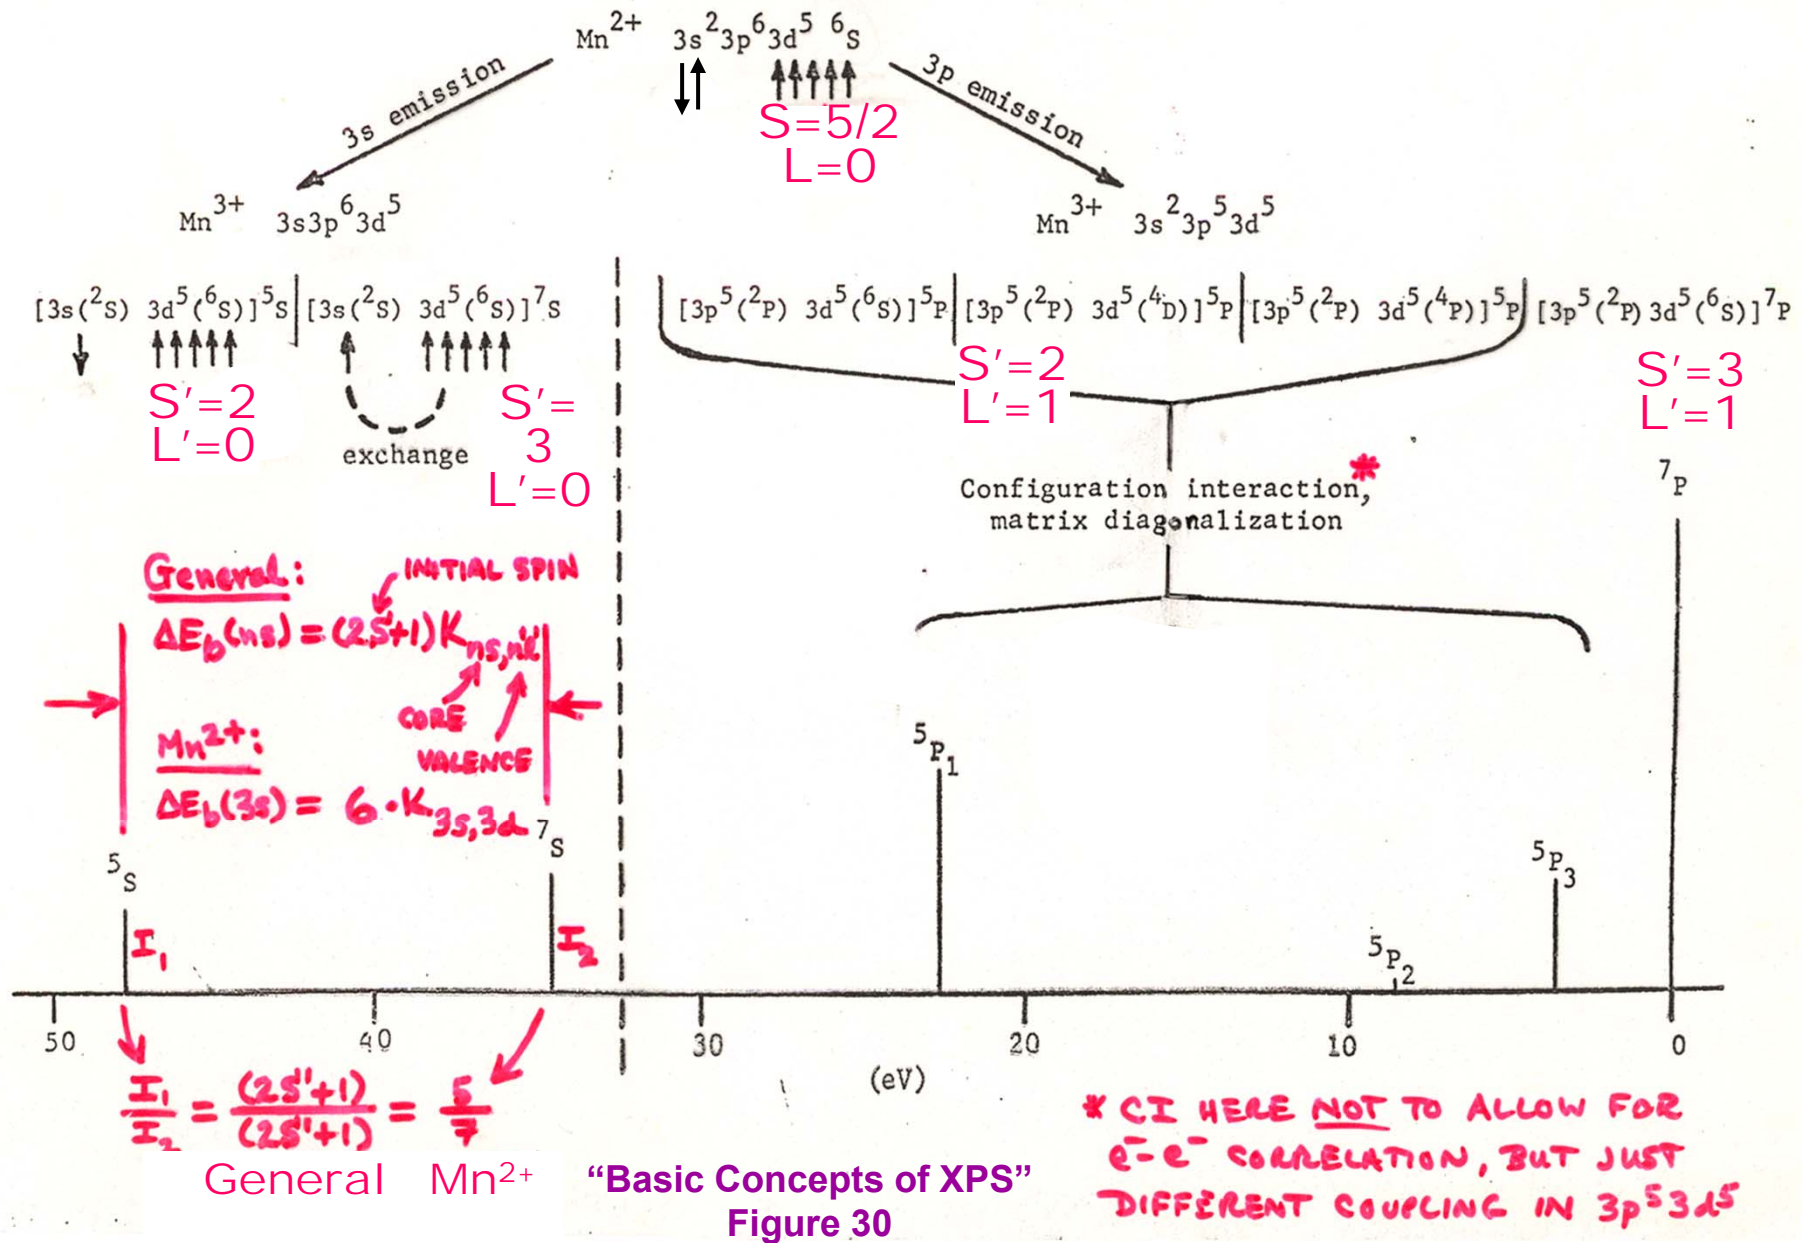 Mn²⁺ 3s²3p⁶3d⁵ ⁶S
3s emission
3p emission
S=5/2
L=0
Mn³⁺ 3s3p⁶3d⁵
Mn³⁺ 3s²3p⁵3d⁵
[3s(²S) 3d⁵(⁶S)]⁵S
[3s(²S) 3d⁵(⁶S)]⁷S
[3p⁵(²P) 3d⁵(⁶S)]⁵P
[3p⁵(²P) 3d⁵(⁴D)]⁵P
[3p⁵(²P) 3d⁵(⁴P)]⁵P
[3p⁵(²P) 3d⁵(⁶S)]⁷P
S'=2
L'=0
exchange
S'=
3
L'=0
S'=2
L'=1
S'=3
L'=1
Configuration interaction,*
matrix diagonalization
⁷P
General:
INITIAL SPIN
ΔE_b(ns) = (2S+1)K_ns,n'l'
CORE
VALENCE
Mn²⁺:
ΔE_b(3s) = 6·K_3s,3d
⁵S
⁷S
I₁
I₂
⁵P₁
⁵P₂
⁵P₃
50
40
30
20
10
0
(eV)
I₁/I₂ = (2S''+1)/(2S'+1) = 5/7
General Mn²⁺
"Basic Concepts of XPS"
Figure 30
* CI HERE NOT TO ALLOW FOR
e⁻-e⁻ CORRELATION, BUT JUST
DIFFERENT COUPLING IN 3p⁵3d⁵